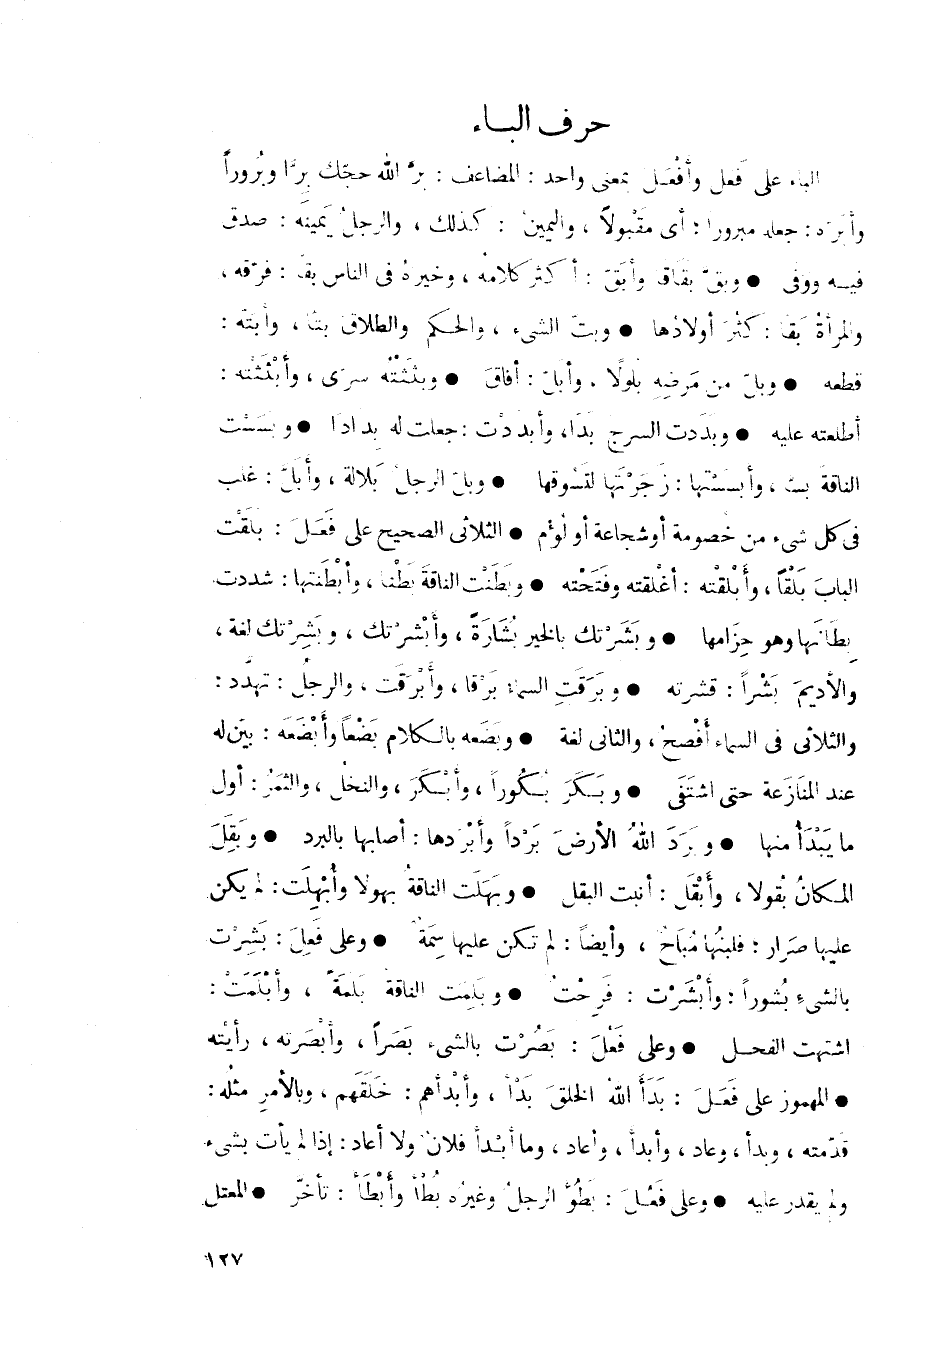 حرف الباء
الباء على فَعل وأفْعَل بمعنى واحد : المضاعف : برَّ الله حجّك بِرًّا وبُروراً
وأبَرّه : جعله مبرورا : أى مَقْبولاً ، واليمينُ : كذلك ، والرجلُ يَمينَه : صدق
فيه ووفى ● وبقّ بقاقا وأبَقّ : أكثر كلامه ، وخيرهُ فى الناس بقّا : فرّقه ،
والمرأةُ بَقّا : كثُرَ أولادُها ● وبتّ الشىء ، والحكم والطلاق بتّا ، وأبتّه :
قطعه ● وبلّ من مَرضِهِ بلولًا ، وأبَلّ : أفاقَ ● وبثَثْتُه سرّى ، وأبْثَثْته :
أطلعته عليه ● وبدَدت السرج بَدّا ، وأبددْت : جعلت له بدادًا ● وبسَسْت
الناقةَ بسّا ، وأبسَسْتها : زَجَرْتَها لتَسُوقها ● وبلّ الرجلُ بَلالة ، وأبَلَّ : غلب
فى كل شىء من خصومة أو شجاعة أو لُؤْم ● الثلاثى الصحيح على فَعَلَ : بلَقْت
البابَ بَلْقاً ، وأَبْلقْته : أغْلقته وفتَحْته ● وبَطَنْت الناقةَ بَطْنا ، وأبْطَنتها : شددت
بِطَانَها وهو حِزَامها ● وبَشَرْتك بالخير بُشَارَةً ، وأبْشرْتك ، وبَشِرْتك لغة ،
والأديمَ بَشْراً : قشرته ● وبَرَقَتِ السماءُ بَرْقا ، وأَبْرقَت ، والرجلُ : تهدَّد :
والثلاثى فى السماء أَفْصحُ ، والثانى لغة ● وبضَعه بالكلام بَضْعاً وأَبْضَعَه : بيّن له
عند المنَازَعة حتى اشتَفَى ● وبَكَرَ بُكُوراً ، وأَبْكَرَ ، والنخلُ ، والثمَرُ : أول
ما يَبْدَأ منها ● وبَرَدَ اللهُ الأرضَ بَرْداً وأبْرَدها : أصابها بالبرد ● وبَقِلَ
المكانُ بُقولا ، وأَبْقَل : أنبت البقل ● وبَهَلَت الناقةُ بهولا وأُبْهِلَت : لم يكن
عليها صَرَار : فلبنُها مُبَاحٌ ، وأيضاً : لم تكن عليها سِمَةٌ ● وعلى فَعِلَ : بَشِرْت
بالشىءِ بُشوراً : وأَبْشَرْت : فَرِحْتُ ● وبَلِمَت الناقة بَلَمَةً ، وأَبْلَمَتْ :
اشتهت الفحل ● وعلى فَعْلَ : بَصُرْت بالشىء بَصَراً ، وأبْصَرته ، رأيته
● المهموز على فَعَلَ : بَدَأَ اللهُ الخلقَ بَدْأً ، وأبْدأهم : خَلَقَهم ، وبالأمرِ مثله :
قدّمته ، وبدأ ، وعاد ، وأبدأ ، وأعاد ، وما أبْدأ فلانٌ ولا أعاد : إذا لم يأت بشىء
ولم يقدر عليه ● وعلى فَعُلَ : بَطُؤَ الرجلُ وغيرُه بُطْأً وأَبْطَأ : تأخرّ ● المعتل
١٢٧